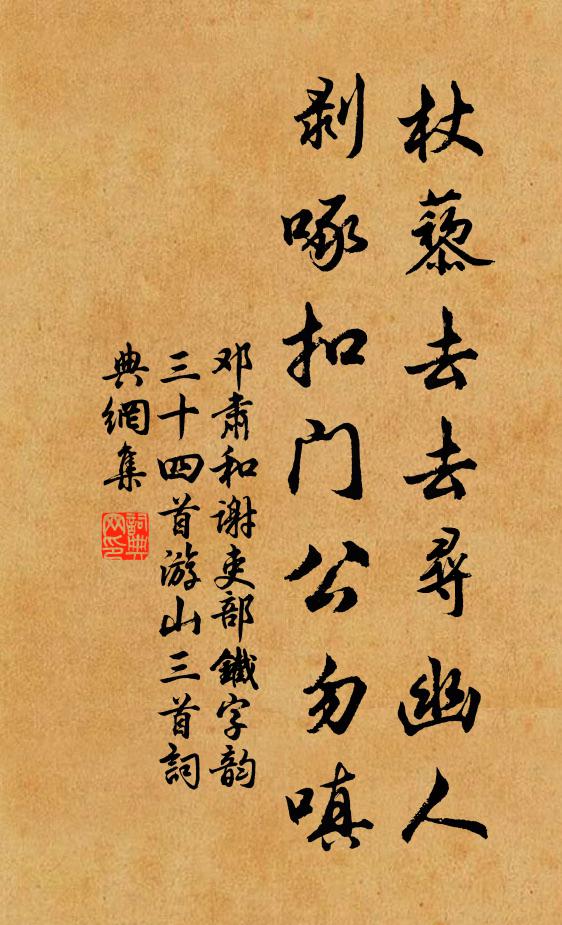 杖藜去去尋幽人
剥啄扣门公勿嗔
邓肃和谢吏部鐵字韵
三十四首游山三首詞
典網集
詞典网印